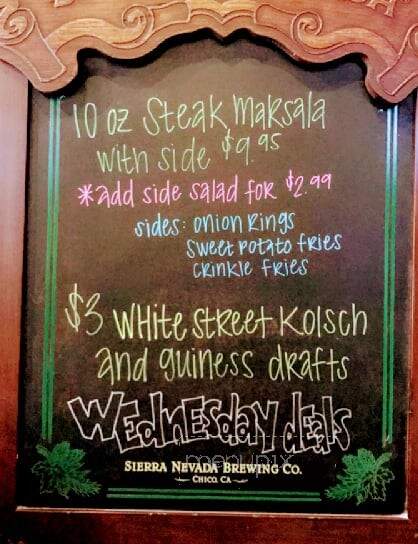 10 oz Steak Marsala
with side $9.95
*add side salad for $2.99
sides: onion Rings
Sweet Potato fries
crinkle fries
$3 White Street Kolsch
and guiness drafts
Wednesday deals
Sierra Nevada Brewing Co.
Chico, CA
menupix